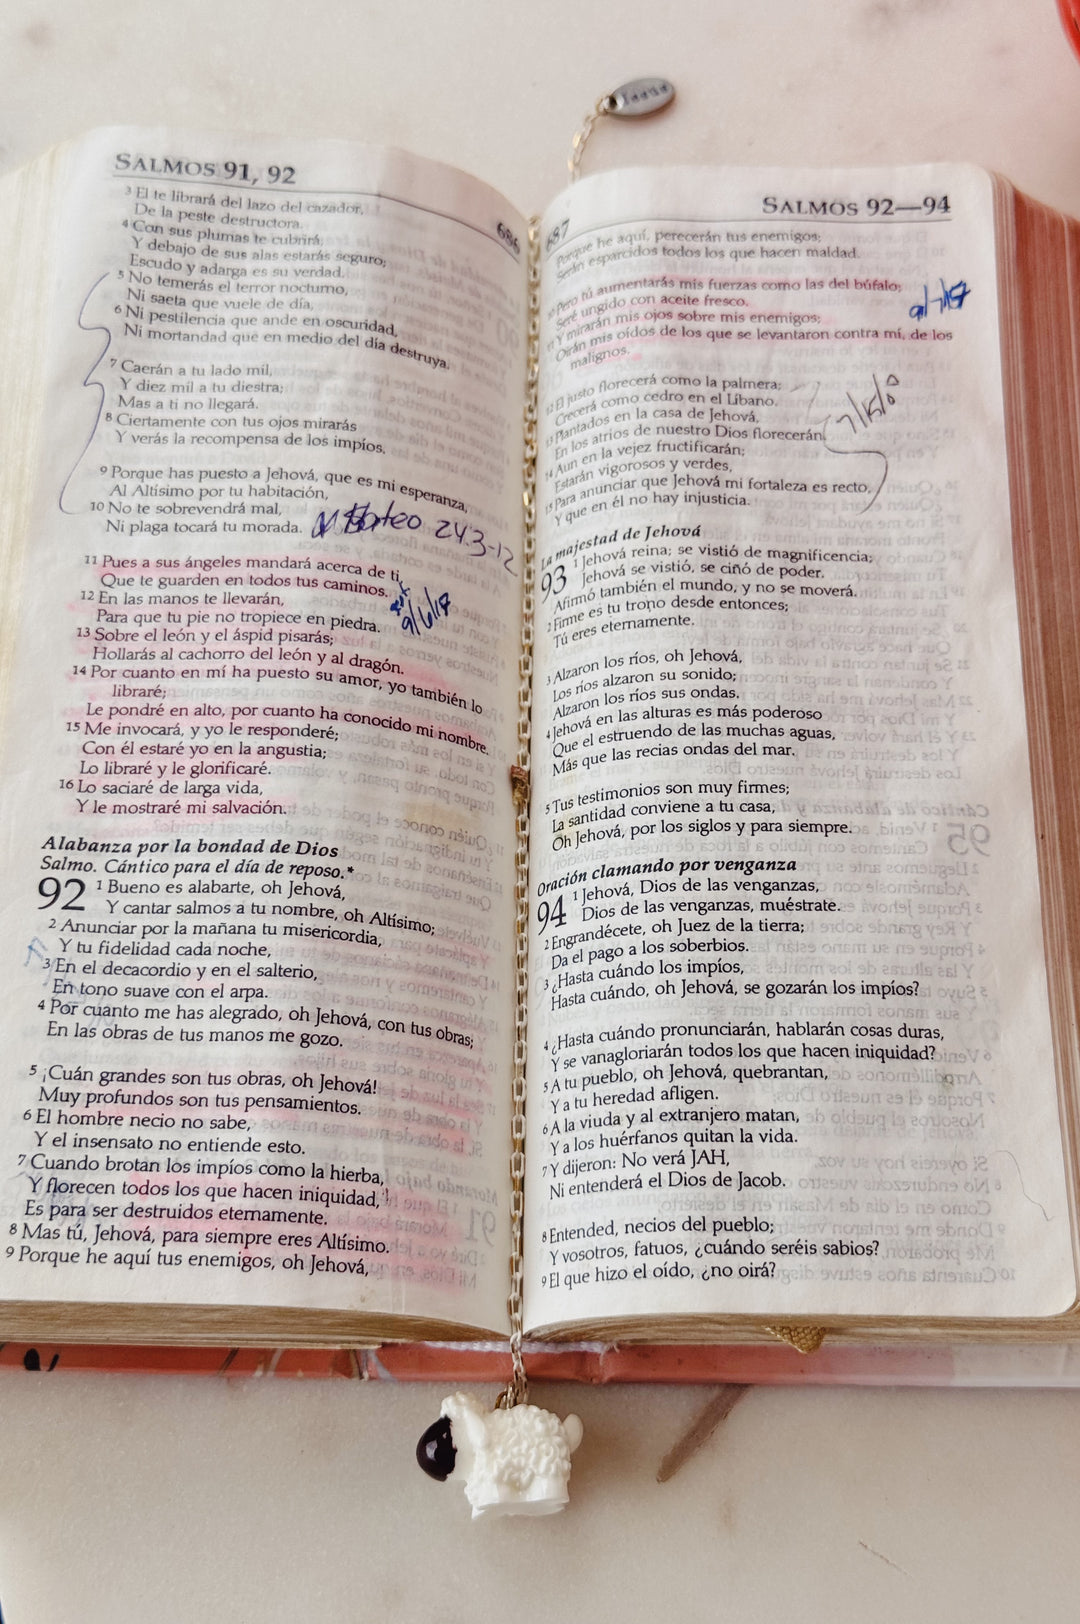 SALMOS 91, 92
686
3 El te librará del lazo del cazador,
De la peste destructora.
4 Con sus plumas te cubrirá,
Y debajo de sus alas estarás seguro;
Escudo y adarga es su verdad.
5 No temerás el terror nocturno,
Ni saeta que vuele de día,
6 Ni pestilencia que ande en oscuridad,
Ni mortandad que en medio del día destruya.
7 Caerán a tu lado mil,
Y diez mil a tu diestra;
Mas a ti no llegará.
8 Ciertamente con tus ojos mirarás
Y verás la recompensa de los impíos.
9 Porque has puesto a Jehová, que es mi esperanza,
Al Altísimo por tu habitación,
10 No te sobrevendrá mal,
Ni plaga tocará tu morada.
Mateo 24:3-12
11 Pues a sus ángeles mandará acerca de ti,
Que te guarden en todos tus caminos.
12 En las manos te llevarán,
Para que tu pie no tropiece en piedra.
9/6/17
13 Sobre el león y el áspid pisarás;
Hollarás al cachorro del león y al dragón.
14 Por cuanto en mí ha puesto su amor, yo también lo
libraré;
Le pondré en alto, por cuanto ha conocido mi nombre.
15 Me invocará, y yo le responderé;
Con él estaré yo en la angustia;
Lo libraré y le glorificaré.
16 Lo saciaré de larga vida,
Y le mostraré mi salvación.
Alabanza por la bondad de Dios
Salmo. Cántico para el día de reposo.*
92 1 Bueno es alabarte, oh Jehová,
Y cantar salmos a tu nombre, oh Altísimo;
2 Anunciar por la mañana tu misericordia,
Y tu fidelidad cada noche,
3 En el decacordio y en el salterio,
En tono suave con el arpa.
4 Por cuanto me has alegrado, oh Jehová, con tus obras;
En las obras de tus manos me gozo.
5 ¡Cuán grandes son tus obras, oh Jehová!
Muy profundos son tus pensamientos.
6 El hombre necio no sabe,
Y el insensato no entiende esto.
7 Cuando brotan los impíos como la hierba,
Y florecen todos los que hacen iniquidad,
Es para ser destruidos eternamente.
8 Mas tú, Jehová, para siempre eres Altísimo.
9 Porque he aquí tus enemigos, oh Jehová,
687
SALMOS 92—94
Porque he aquí, perecerán tus enemigos;
Serán esparcidos todos los que hacen maldad.
10 Pero tú aumentarás mis fuerzas como las del búfalo;
Seré ungido con aceite fresco.
11 Y mirarán mis ojos sobre mis enemigos;
Oirán mis oídos de los que se levantaron contra mí, de los
malignos.
12 El justo florecerá como la palmera;
Crecerá como cedro en el Líbano.
13 Plantados en la casa de Jehová,
En los atrios de nuestro Dios florecerán.
14 Aun en la vejez fructificarán;
Estarán vigorosos y verdes,
15 Para anunciar que Jehová mi fortaleza es recto,
Y que en él no hay injusticia.
La majestad de Jehová
93 1 Jehová reina; se vistió de magnificencia;
Jehová se vistió, se ciñó de poder.
Afirmó también el mundo, y no se moverá.
2 Firme es tu trono desde entonces;
Tú eres eternamente.
3 Alzaron los ríos, oh Jehová,
Los ríos alzaron su sonido;
Alzaron los ríos sus ondas.
4 Jehová en las alturas es más poderoso
Que el estruendo de las muchas aguas,
Más que las recias ondas del mar.
5 Tus testimonios son muy firmes;
La santidad conviene a tu casa,
Oh Jehová, por los siglos y para siempre.
Oración clamando por venganza
94 1 Jehová, Dios de las venganzas,
Dios de las venganzas, muéstrate.
2 Engrandécete, oh Juez de la tierra;
Da el pago a los soberbios.
3 ¿Hasta cuándo los impíos,
Hasta cuándo, oh Jehová, se gozarán los impíos?
4 ¿Hasta cuándo pronunciarán, hablarán cosas duras,
Y se vanagloriarán todos los que hacen iniquidad?
5 A tu pueblo, oh Jehová, quebrantan,
Y a tu heredad afligen.
6 A la viuda y al extranjero matan,
Y a los huérfanos quitan la vida.
7 Y dijeron: No verá JAH,
Ni entenderá el Dios de Jacob.
8 Entended, necios del pueblo;
Y vosotros, fatuos, ¿cuándo seréis sabios?
9 El que hizo el oído, ¿no oirá?